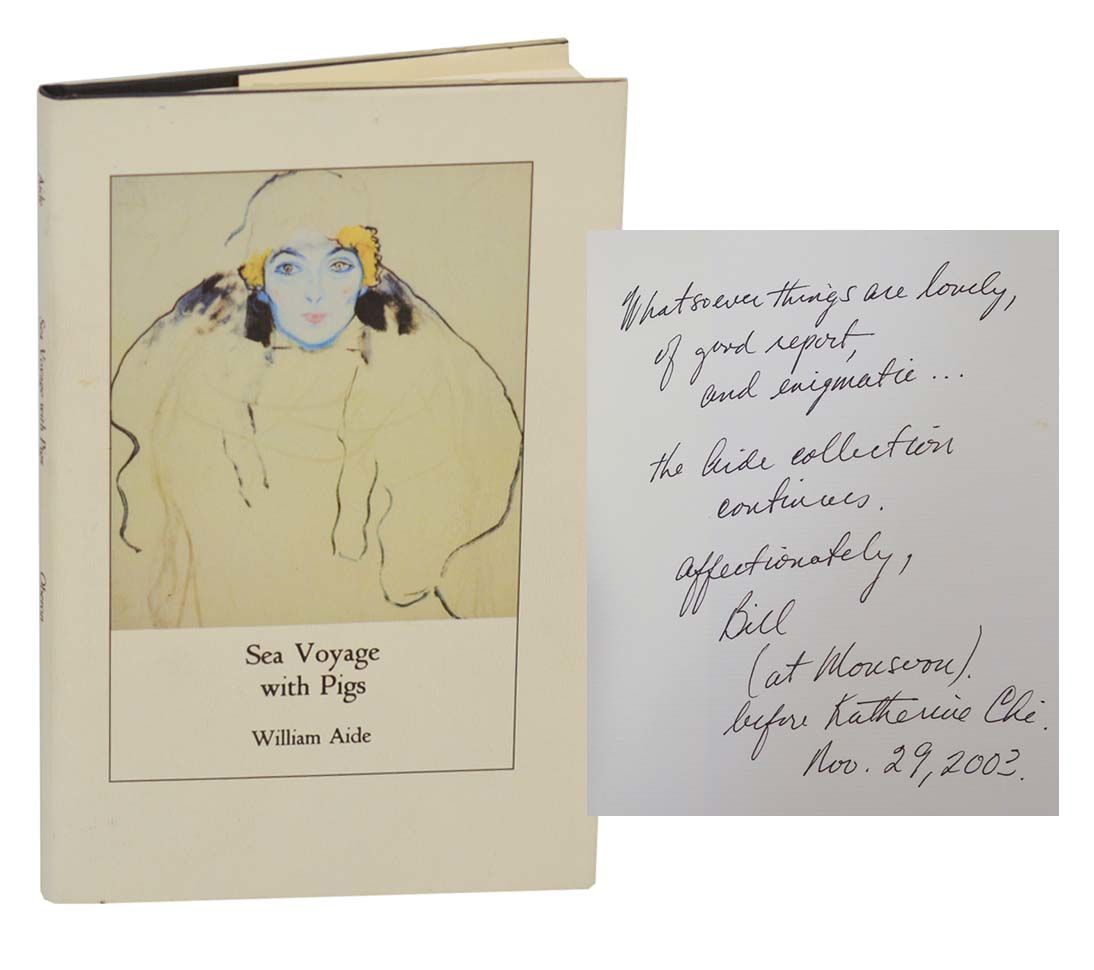 Aide
Sea Voyage with Pigs
Oberon
Sea Voyage
with Pigs
William Aide
Whatsoever things are lovely,
of good report,
and enigmatic ...
the Aide collection
continues.
affectionately,
Bill
(at Monsoon).
before Katherine Chi.
Nov. 29, 2003.